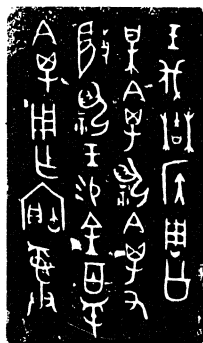 王伐蓋侯周公
某禽祝禽又
敐祝王易金百寽
禽用乍寶彝